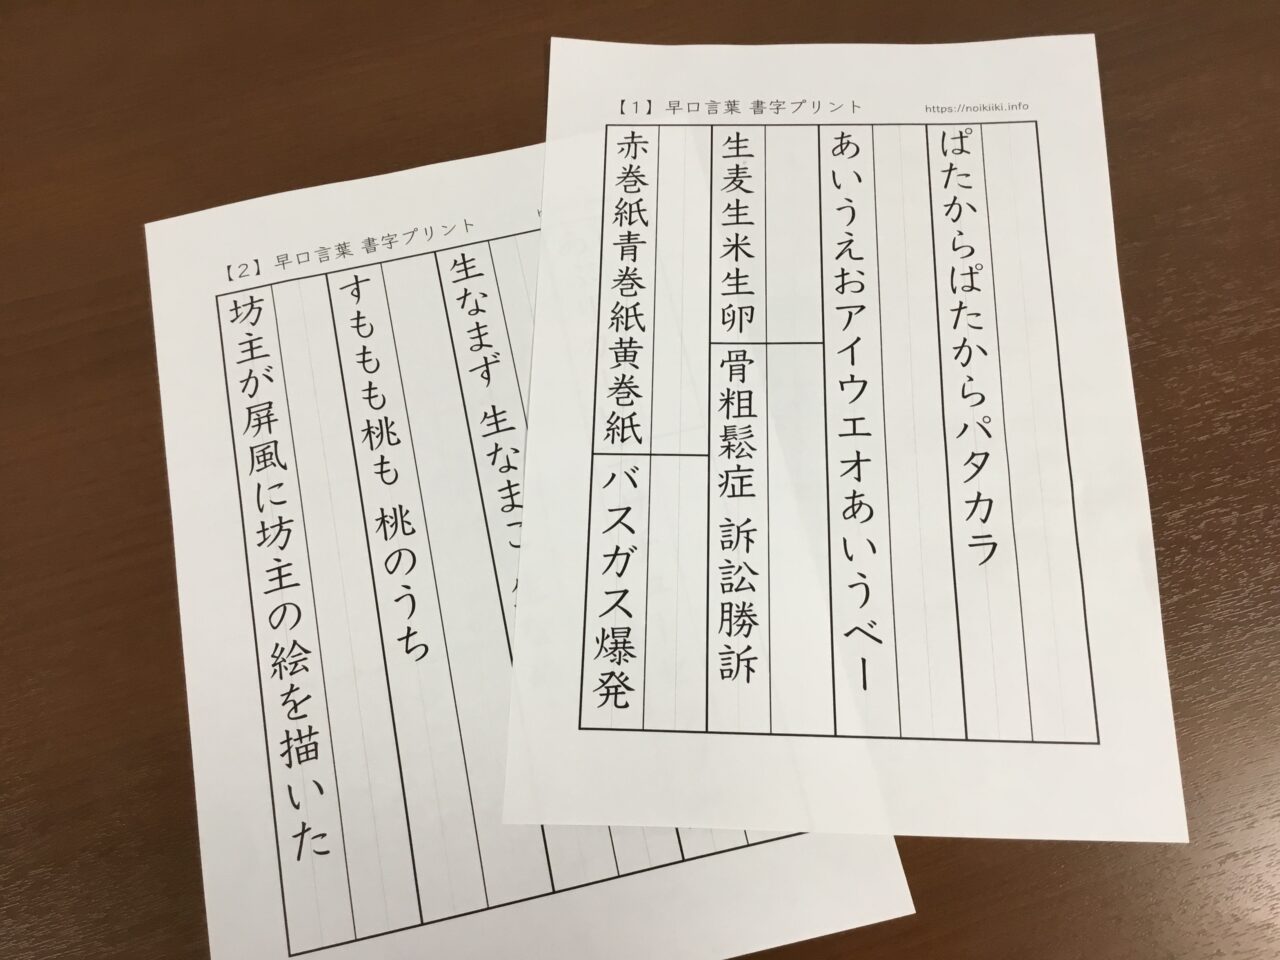 【1】早口言葉 書字プリント
https://noikiiki.info
ぱたからぱたからパタカラ
あいうえおアイウエオあいうべー
生麦生米生卵
骨粗鬆症 訴訟勝訴
赤巻紙青巻紙黄巻紙
バスガス爆発
【2】早口言葉 書字プリント
生なまず 生なまこ
すももも桃も 桃のうち
坊主が屏風に坊主の絵を描いた